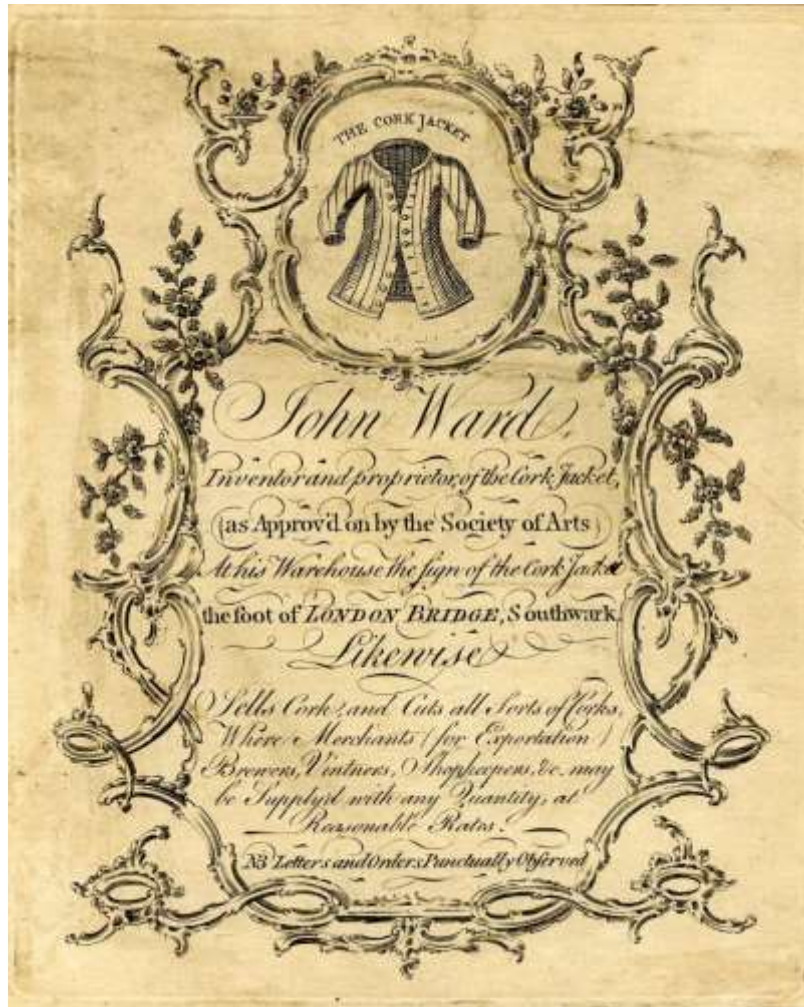 THE CORK JACKET
John Ward,
Inventor and proprietor, of the Cork Jacket,
(as Approv'd on by the Society of Arts)
At his Warehouse the sign of the Cork Jacket
the foot of LONDON BRIDGE, Southwark,
Likewise
Sells Cork, and Cuts all Sorts of Corks,
Where Merchants (for Exportation)
Brewers, Vintners, Shopkeepers, &c. may
be Supply'd with any Quantity, at
Reasonable Rates.
NB Letters and Orders Punctually Observed